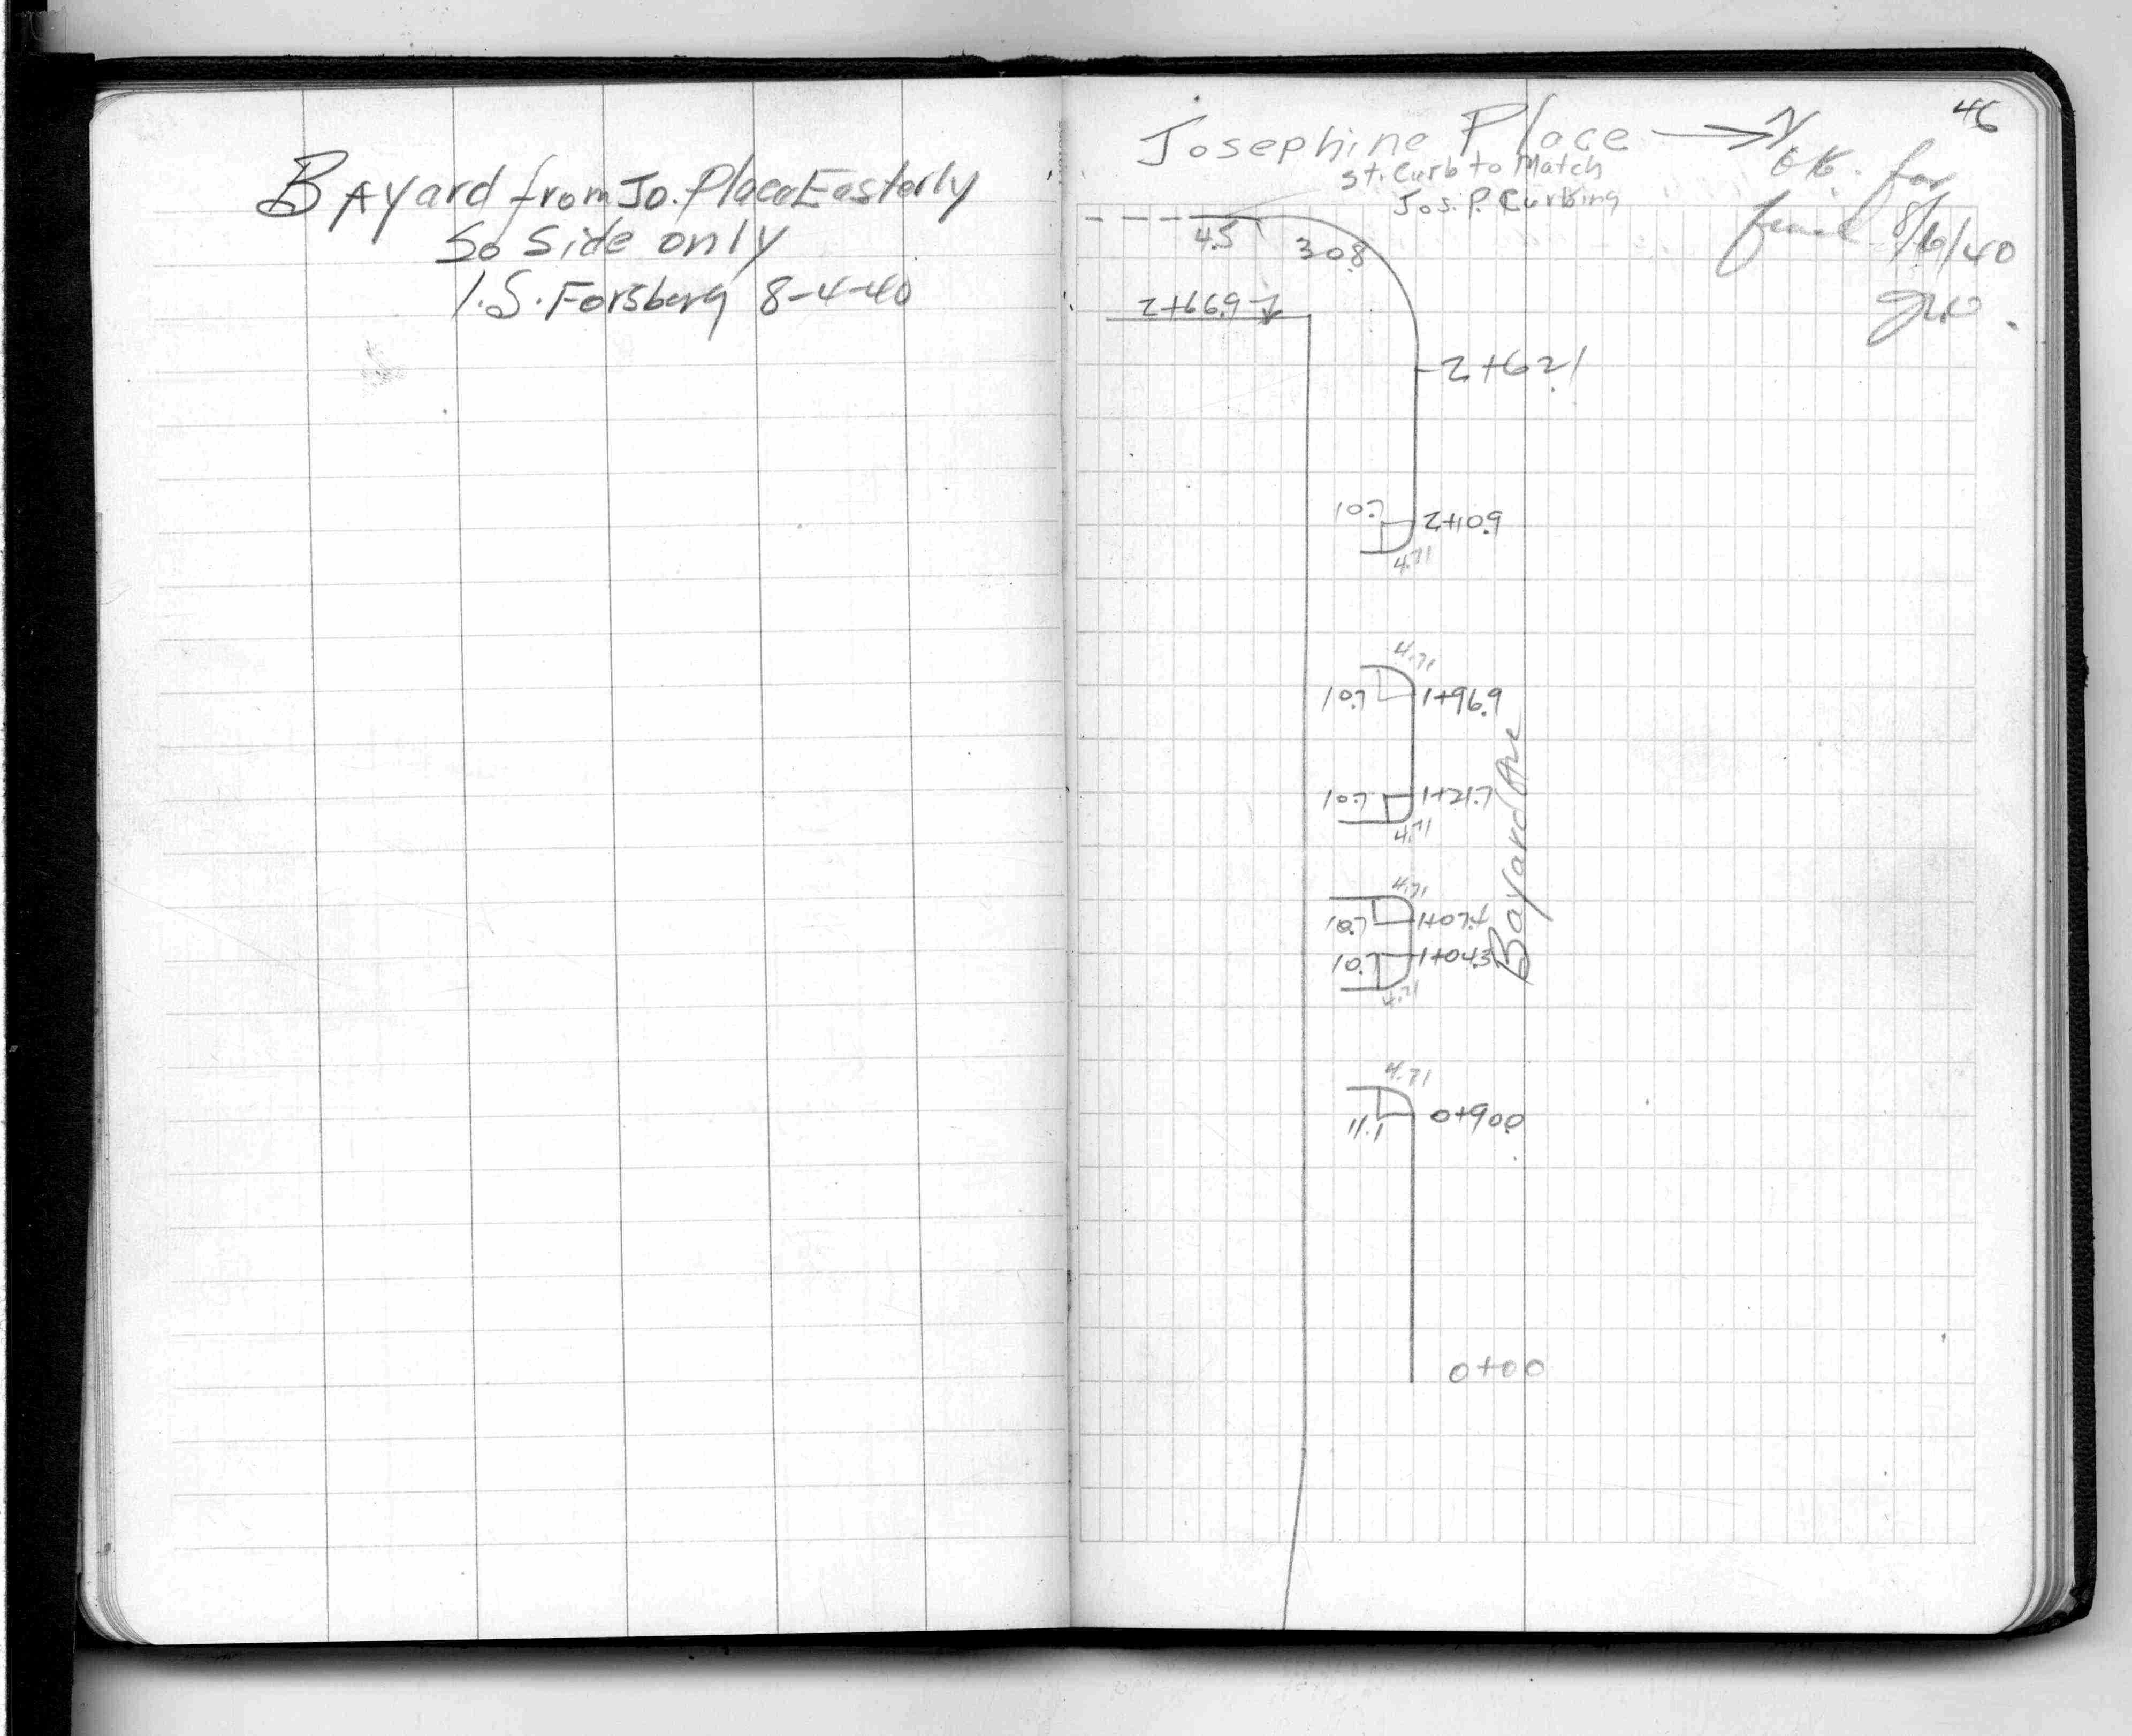 BAyard from Jo. Place Easterly
So Side only
I.S. Forsberg 8-4-40
46
Josephine Place → N
St. Curb to Match
Jos. P. Curbing
O.K. for
8/6/40
4.5
30.8
2+66.9
2+62.1
10.7
2+10.9
4.71
4.71
10.7
1+96.9
10.7
1+21.7
4.71
Bayard Ave
4.71
10.7
1+07.4
10.7
1+04.3
4.71
4.71
11.1
0+90.0
0+00